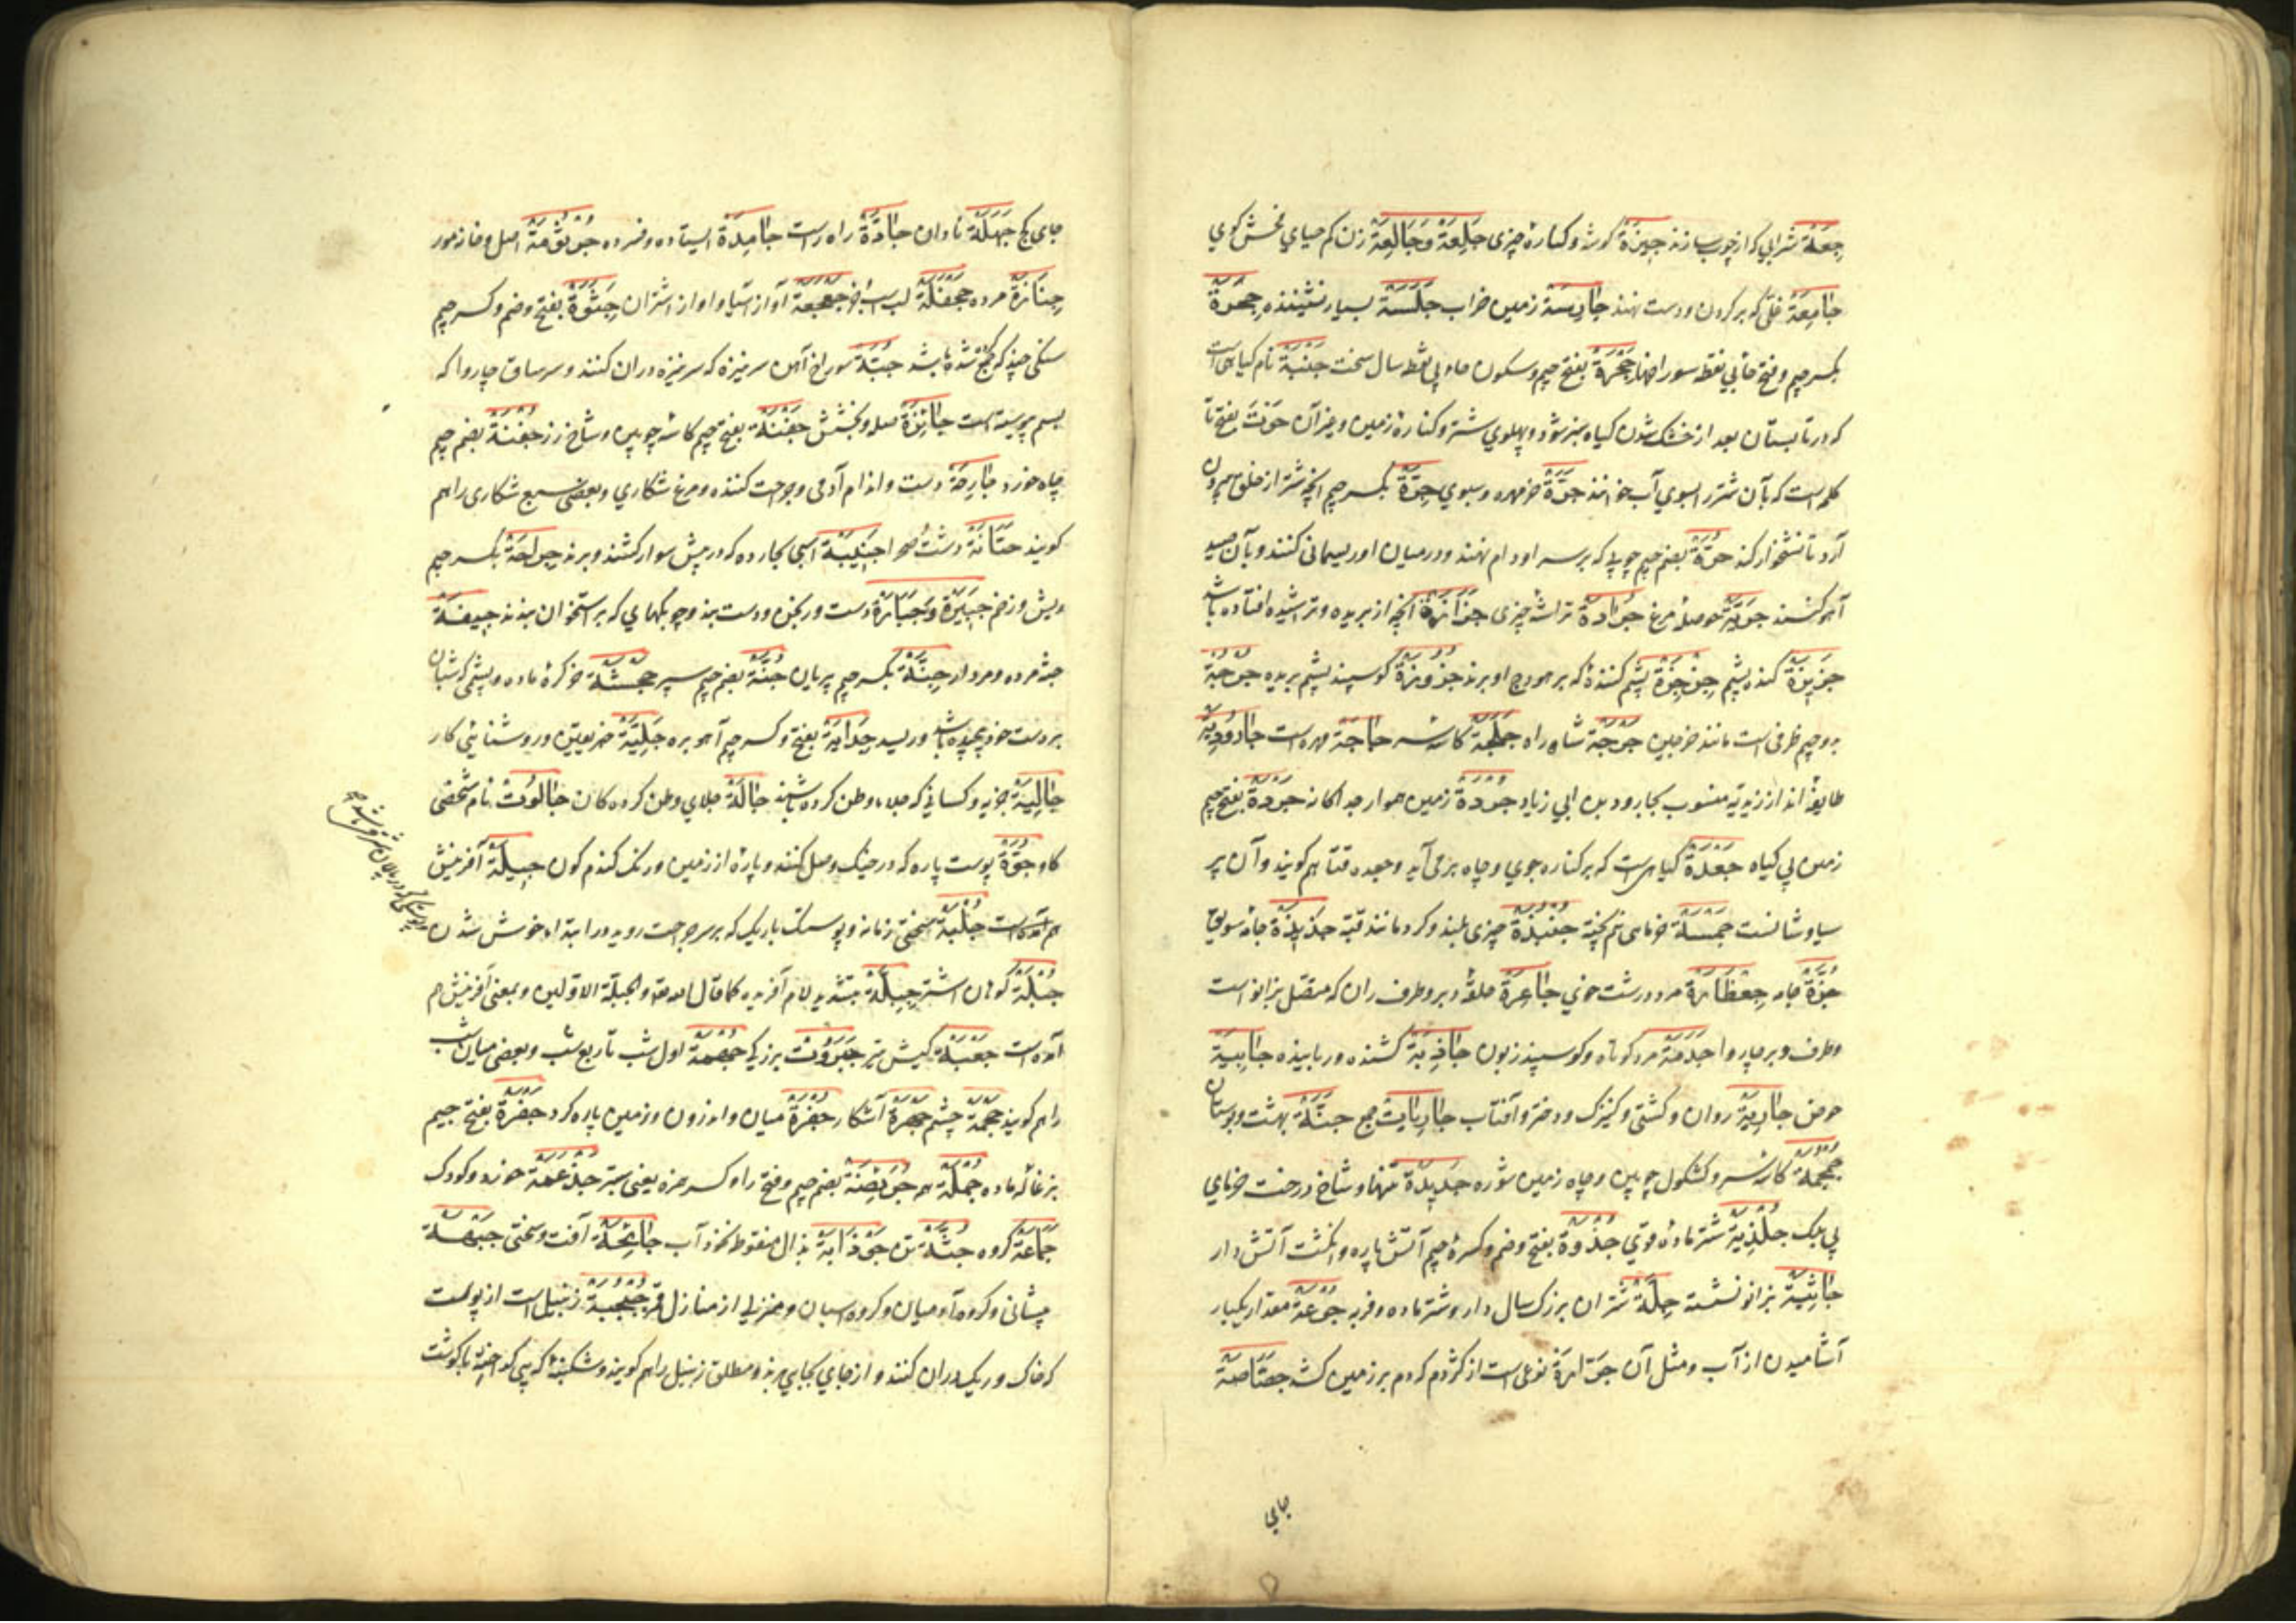 جعة شرابی که از جو سازند جیزة گوشه و کنارهٔ چیزی جلعة و جالعة زن کم حیای فحش کوی
جامعة غلی که بر کردن و دست نهند جارسة زمین خراب جلسة بسیار نشیننده جحرة
بکسر جیم و فتح حای بی نقطه سوراخها جحرة بفتح جیم و سکون حاء بی نقطه سال سخت جنبة نام کیاهی است
که در تابستان بعد از خشک شدن کیاه سبز شود و پهلوی شتر و کنارهٔ زمین و غیر آن جوت بفتح تا
کلمه است که بآن شتر را بسوی آب خوانند جرة خرمهره و سبوی جرة بکسر جیم آنچه شتر از حلق بیرون
آرد تا نشخوار کند جرة بضم جیم چوبی که بر سر او دام نهند و در میان او ریسمانی کنند و بآن صید
آهو کنند جریة حوصلهٔ مرغ جرادة تراشهٔ چیزی جزازة آنچه از بریده و تراشیده افتاده باشد
جزیزة کندهٔ پشم جزجزة پشم کنندهٔ که بر هودج آویزند جزوزة کوسپند پشم بریده جرجة
بدو جیم ظرفی است مانند خرجین جرجة شاه راه جلجة کاسهٔ سر حاجة مهره است جارودیة
طایفهٔ اند از زیدیه منسوب بجارود بن ابی زیاد جردة زمین هموار جداکانه جردة بفتح جیم
زمین بی کیاه جعدة کیاهی است که بر کنارهٔ جوی و چاه بر می آید و جعده قثا هم کویند و آن پر
سیاوشانست جمسة خرمای نیم پخته جنبذة چیزی بلند و کرد مانند قبه جذیذة جامهٔ سویق
جزة جامه جعظارة مرد درشت خوی جاعرة حلقهٔ دبر و طرف ران که متصل برانو است
و طرف دبر چاروا جدمة مرد کوتاه و کوسپند زبون جاذبة کشنده و رباینده جابیة
حوض جاریة روان و کشتی و کنیزک و دختر و آفتاب جاریات جمع جنة بهشت و بوستان
جمجمة کاسهٔ سر و کشکول چوبین و چاه زمین شوره جریدة تنها و شاخ درخت خرمای
بی برک جلذیة شتر مادهٔ قوی جذوة بفتح و ضم و کسر جیم آتش پاره و انکشت آتش دار
جاثیة بزانو نشسته جلة شتران بزرک سال دار و شتر ماده و فربه جرعة مقدار یکبار
آشامیدن از آب و مثل آن جرارة نوعی است از کژدم که دم بر زمین کشد جصاصة
جای
جای کچ جهلة نادان جادة راه راست جامدة ایستاده و فسرده جرثومة اصل و خانه مور
جنازة مرده جحفلة لب اسب جعجعة آواز آسیا و آواز اشتران جثوة بفتح و ضم و کسر جیم
سنکی چند که جمع شده باشد جبة سوراخ آهن سر نیزه که سر نیزه در آن کنند و سر ساق چاروا که
بسم پیوسته است جائزة صله و بخشش جفنة بفتح جیم کاسهٔ چوبین و شاخ رز جفنة بضم جیم
چاه خرد جارحة دست و اندام آدمی و جراحت کننده و مرغ شکاری و بعضی سبع شکاری را هم
کویند جبانة دشت و صحرا جنیبة اسبی بجا رده که در پیش سوار کشند و برند جراحة بکسر جیم
ریش و زخم جبیرة و جبارة دست ورنجن و دست بند و چوبکهای که بر استخوان بندند جیفة
جثهٔ مرده و مردار جنة بکسر جیم پریان جنة بضم جیم سپر جحشة خر کرهٔ ماده و پشمی که شبان
بر دست خود پیچیده باشد و ریسد جدایة بفتح و کسر جیم آهو بره جلیة خبر یقین و روشنائی کار
جالیة جزیه و کسانی که جلاء وطن کرده باشند جالة جلای وطن کرده کان جالوت نام شخصی
کاو جوة پوست پاره که در خیک وصل کنند و پارهٔ از زمین و رنک کندم کون جبلة آفرینش
هم آمده است جلبة سختی زمانه و پوستک باریک که بر سر جراحت روید در ابتداء خوش شدن
جبلة کوهان اشتر جبلة بتشدید لام آفریده کما قال الله تعالی والجبلة الاولین و بمعنی آفرینش هم
آمده است جعبة کیش تیر جبروت بزرکی جهمة اول شب تا ربع شب و بعضی میان شب
را هم کویند جحمة چشم جهرة آشکار جفرة میان و اندرون و زمین پاره کرد جفرة بفتح جیم
بزغالهٔ ماده جملة همه جرئضة بضم جیم و فتح را و کسر همزه یعنی ستبر جذعمة خرد و کودک
جماعة کروه جثة تن جوذابة بذال منقوط نخود آب جائحة آفت و سختی جبهة
پیشانی و کروه آدمیان و کروه اسبان و منزلی از منازل قمر جبجبة زنبیل است از پوست
که خاک و ریک در آن کنند و از جای بجایی برند و مطلق زنبیل را هم کویند و شکنبه که پی کداخته با کوشت